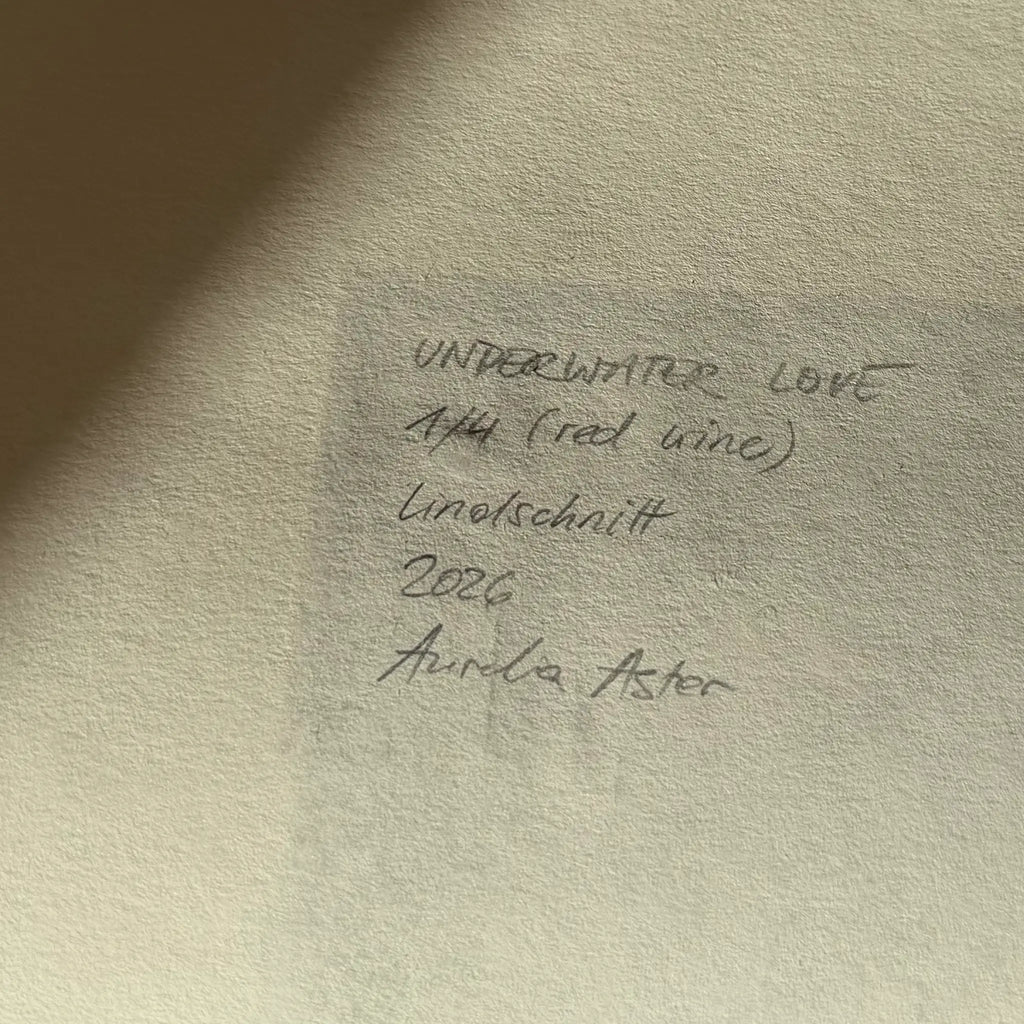 UNDERWATER LOVE
1/4 (red wine)
Linolschnitt
2026
Aurelia Aster